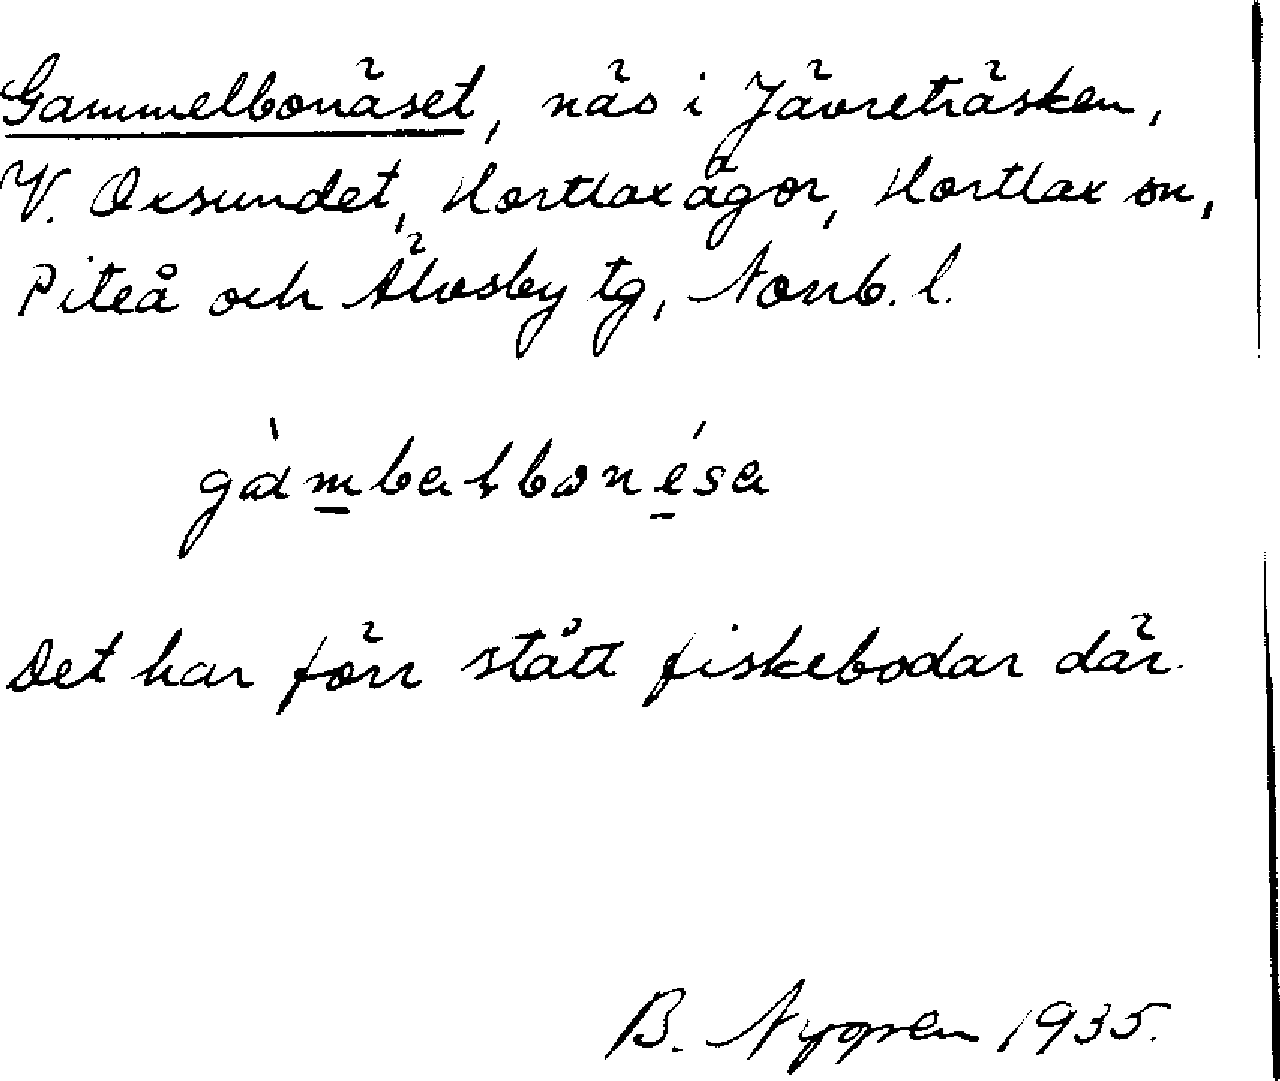 Gammelbonäset, näs i Jävreträsken,
V. Oxsundet, Hortlax ägor, Hortlax sn,
Piteå och Älvsby tg, Norrb. l.
gàmbaɫbonésa
Det har förr stått fiskebodar där.
B. Nygren 1935.